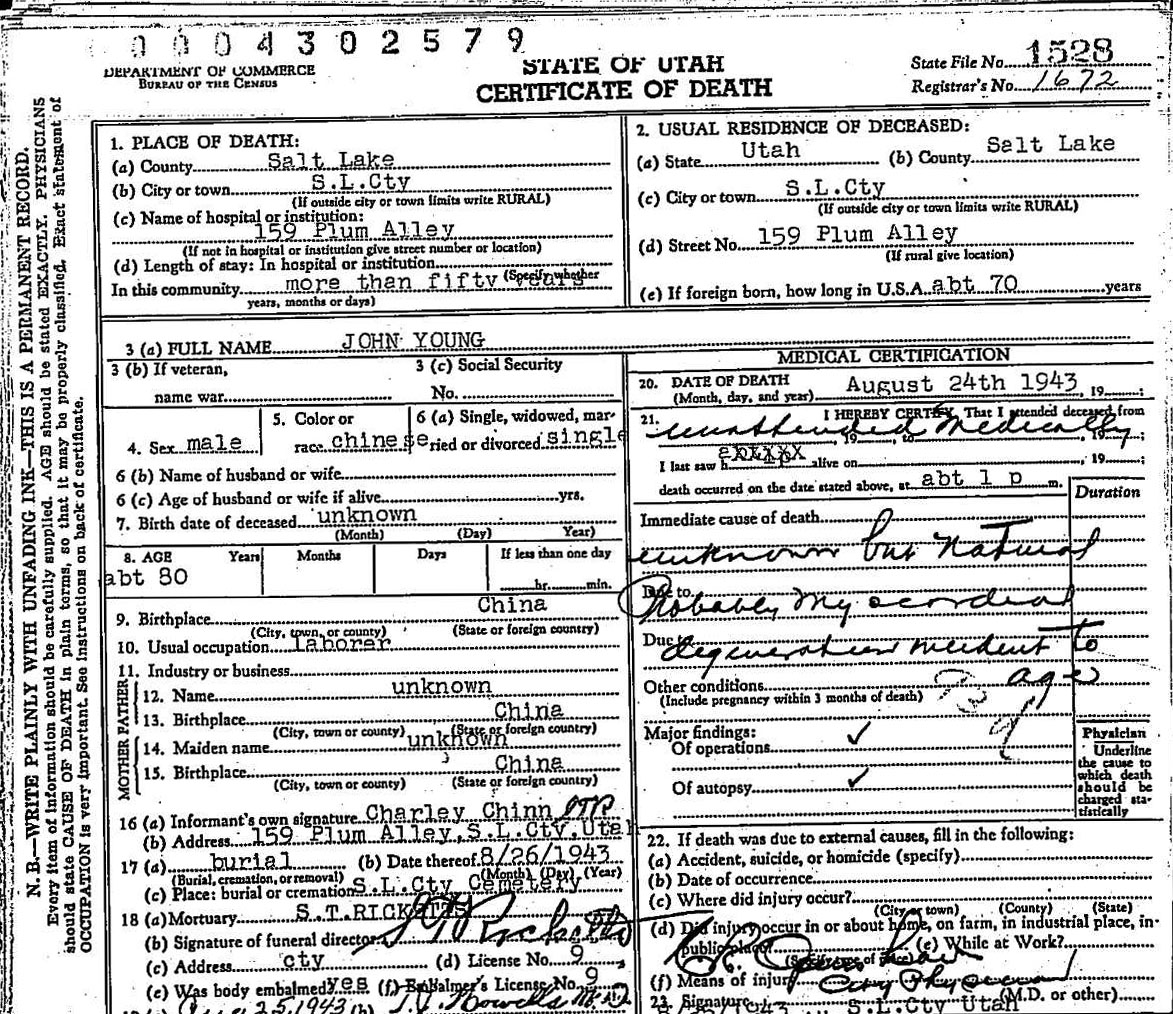 0004302579
DEPARTMENT OF COMMERCE
BUREAU OF THE CENSUS
STATE OF UTAH
CERTIFICATE OF DEATH
State File No. 1528
Registrar's No. 1672
N. B.—WRITE PLAINLY WITH UNFADING INK—THIS IS A PERMANENT RECORD.
Every item of information should be carefully supplied. AGE should be stated EXACTLY. PHYSICIANS
should state CAUSE OF DEATH in plain terms, so that it may be properly classified. Exact statement of
OCCUPATION is very important. See instructions on back of certificate.
1. PLACE OF DEATH:
(a) County Salt Lake
(b) City or town S.L.Cty
(If outside city or town limits write RURAL)
(c) Name of hospital or institution:
159 Plum Alley
(If not in hospital or institution give street number or location)
(d) Length of stay: In hospital or institution
(Specify whether
In this community more than fifty years
years, months or days)
2. USUAL RESIDENCE OF DECEASED:
(a) State Utah (b) County Salt Lake
(c) City or town S.L.Cty
(If outside city or town limits write RURAL)
(d) Street No. 159 Plum Alley
(If rural give location)
(e) If foreign born, how long in U.S.A. abt 70 years
3 (a) FULL NAME JOHN YOUNG
3 (b) If veteran,
name war
3 (c) Social Security
No.
4. Sex male
5. Color or
race chinese
6 (a) Single, widowed, mar-
ried or divorced single
6 (b) Name of husband or wife
6 (c) Age of husband or wife if alive yrs.
7. Birth date of deceased unknown
(Month) (Day) Year)
8. AGE Years Months Days If less than one day
abt 80 hr. min.
9. Birthplace China
(City, town, or county) (State or foreign country)
10. Usual occupation laborer
11. Industry or business
FATHER
12. Name unknown
13. Birthplace China
(City, town or county) (State or foreign country)
MOTHER
14. Maiden name unknown
15. Birthplace China
(City, town or county) (State or foreign country)
16 (a) Informant's own signature Charley Chinn
(b) Address 159 Plum Alley, S.L.Cty, Utah
17 (a) burial (b) Date thereof 8/26/1943
(Burial, cremation, or removal) (Month) (Day) (Year)
(c) Place: burial or cremation S.L.Cty Cemetery
18 (a) Mortuary S.T.RICKETTS
(b) Signature of funeral director S T Ricketts
(c) Address cty (d) License No. 9
(e) Was body embalmed yes (f) Embalmer's License No. 9
25, 1943 (b)
MEDICAL CERTIFICATION
20. DATE OF DEATH August 24th 1943, 19 ;
(Month, day, and year)
21. I HEREBY CERTIFY, That I attended deceased from
unattended medically
, 19 , to , 19 ;
I last saw h alive on , 19 ;
death occurred on the date stated above, at abt 1 p m.
Duration
Immediate cause of death
unknown but natural
Due to
Probably myocordial
Due to
degeneration incident to
age
Other conditions
(Include pregnancy within 3 months of death)
Major findings:
Of operations ✓
Of autopsy ✓
Physician
Underline
the cause to
which death
should be
charged sta-
tistically
22. If death was due to external causes, fill in the following:
(a) Accident, suicide, or homicide (specify)
(b) Date of occurrence
(c) Where did injury occur?
(City or town) (County) (State)
(d) Did injury occur in or about home, on farm, in industrial place, in-
public place? (e) While at Work?
(Specify type of place)
(f) Means of injury City Physician
23. Signature (M.D. or other)
S.L.Cty Utah